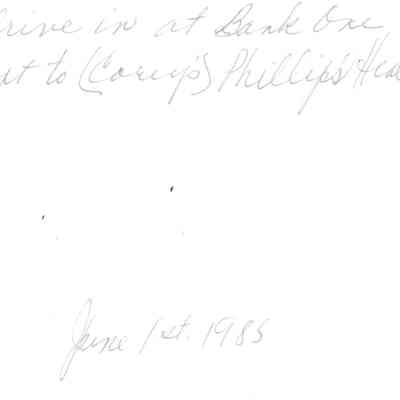 Drive in at Bank One,
to (Corey's) Phillips
June 1st. 198